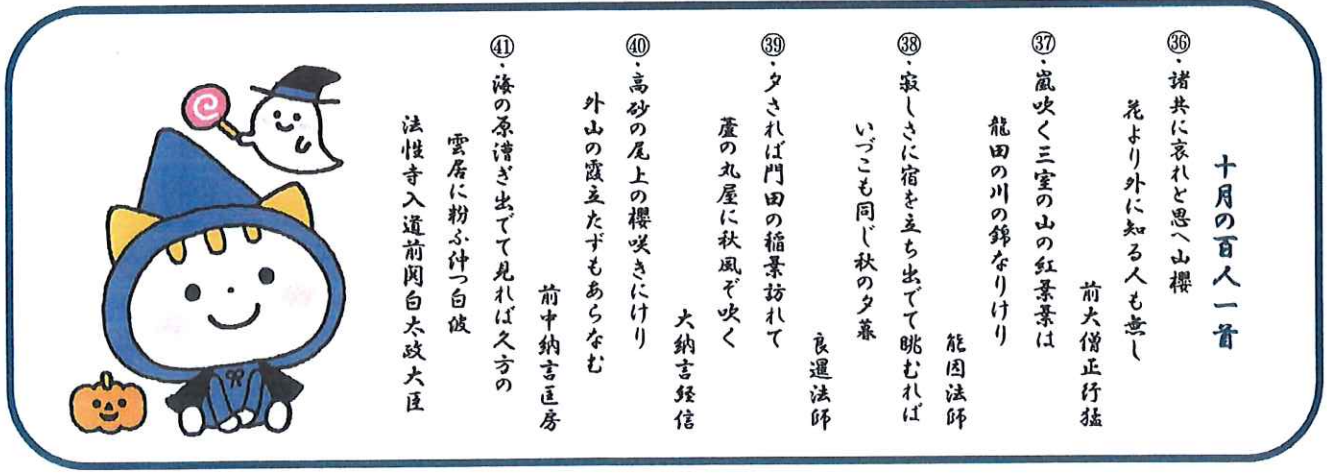 十月の百人一首
㊱・諸共に哀れと思へ山櫻
花より外に知る人も無し
前大僧正行猛
㊲・嵐吹く三室の山の紅葉葉は
龍田の川の錦なりけり
能因法師
㊳・寂しさに宿を立ち出でて眺むれば
いづこも同じ秋の夕暮
良暹法師
㊴・夕されば門田の稲葉訪れて
蘆の丸屋に秋風ぞ吹く
大納言経信
㊵・高砂の尾上の櫻咲きにけり
外山の霞立たずもあらなむ
前中納言匡房
㊶・海の原漕ぎ出でて見れば久方の
雲居に粉ふ仲つ白波
法性寺入道前関白太政大臣